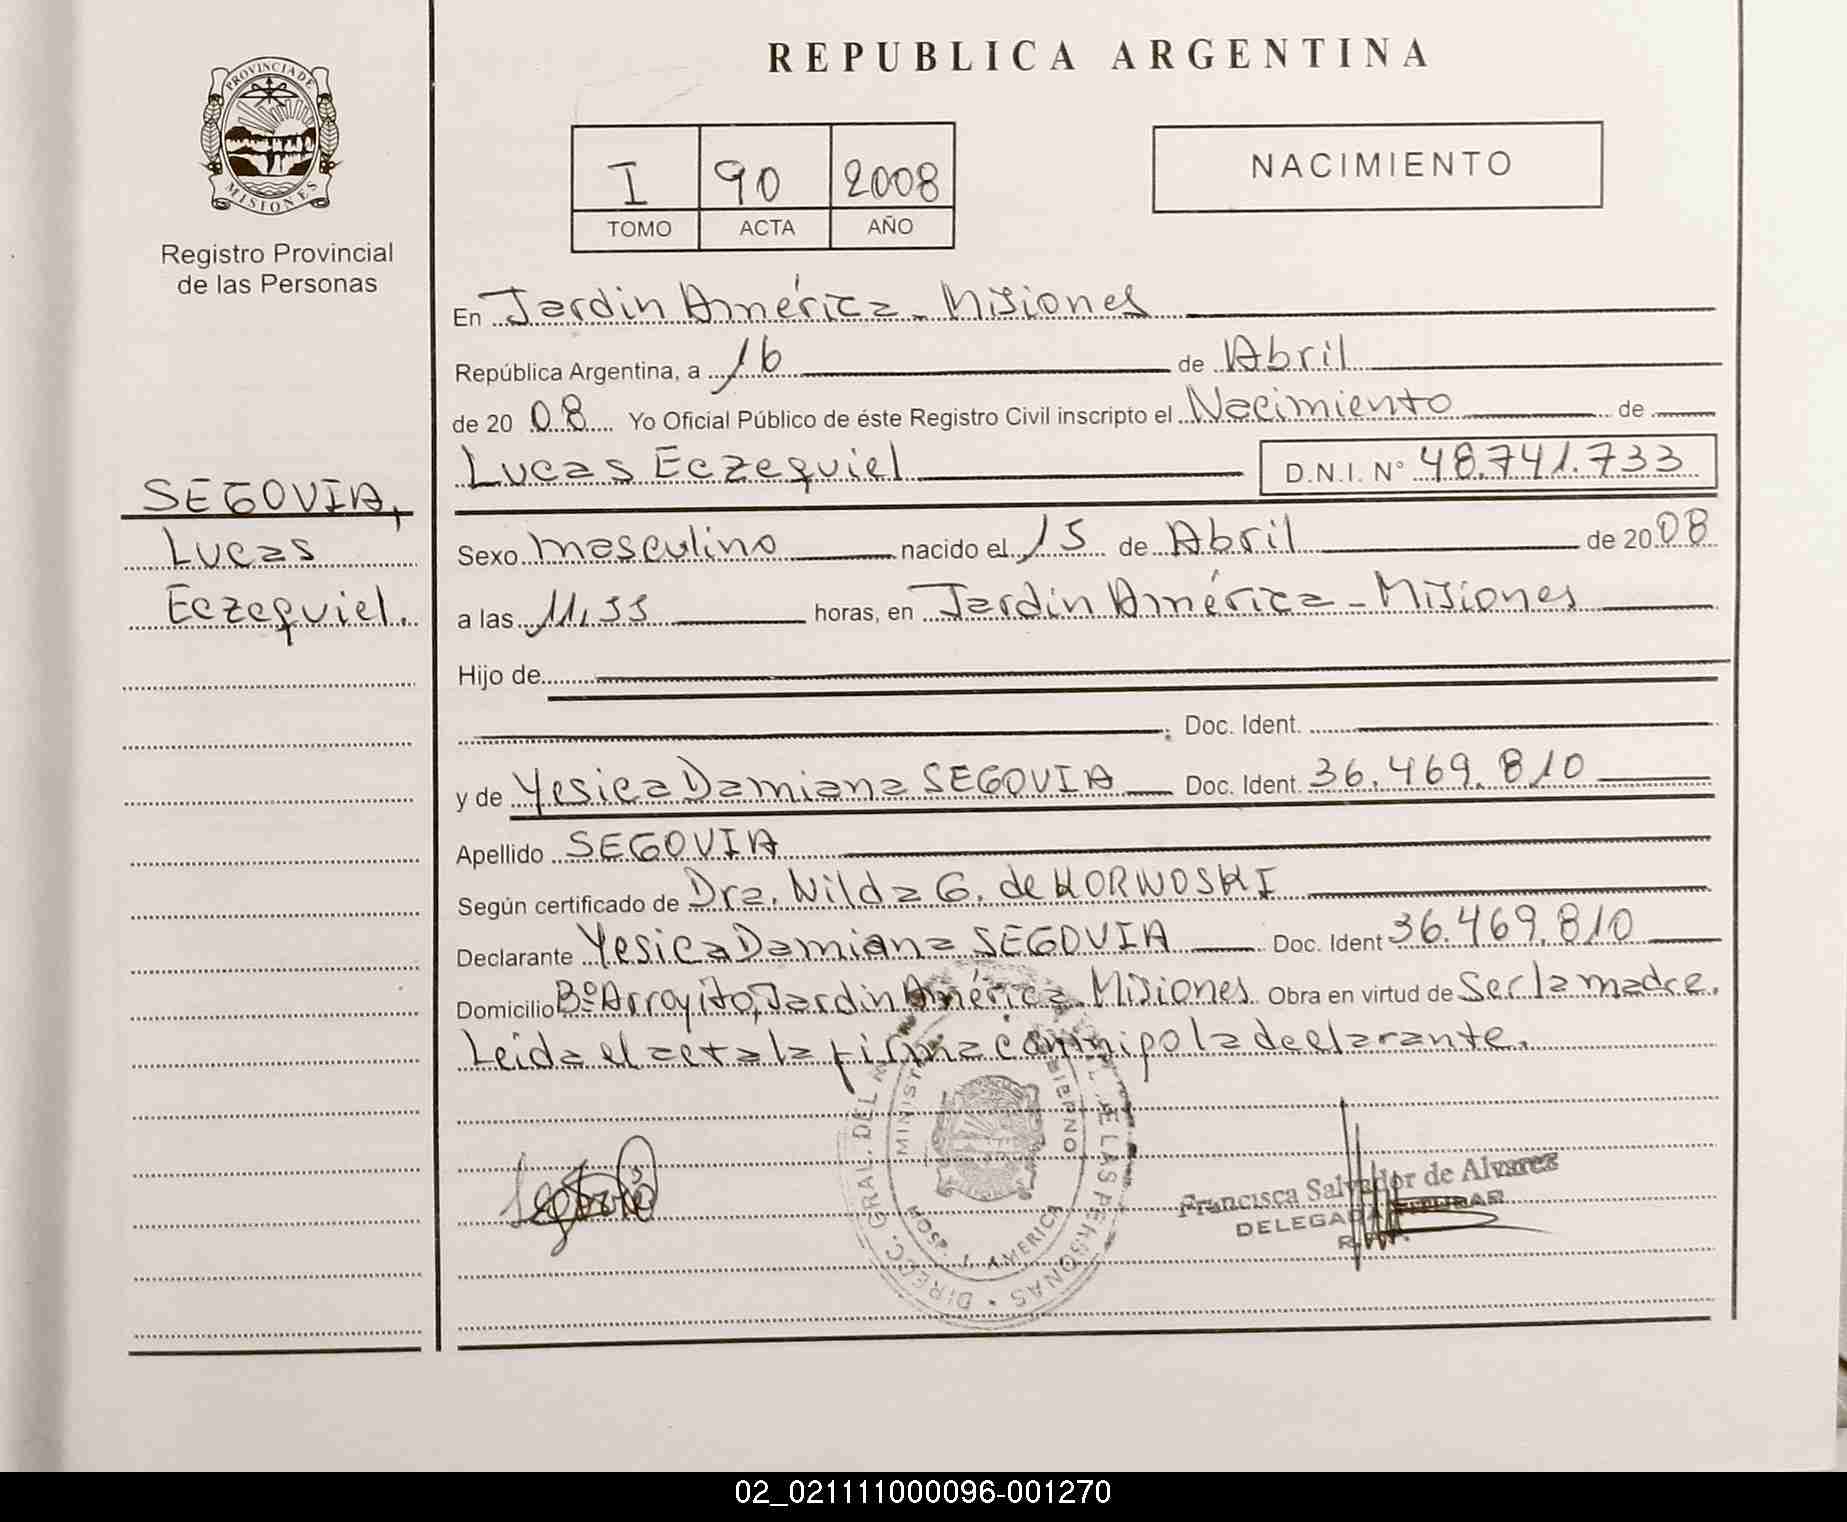 REPUBLICA ARGENTINA
PROVINCIA DE
MISIONES
Registro Provincial
de las Personas
I 90 2008
TOMO ACTA AÑO
NACIMIENTO
En Jardin América - Misiones
República Argentina, a 16 de Abril
de 20 08 Yo Oficial Público de éste Registro Civil inscripto el Nacimiento de
Lucas Eczequiel D.N.I. N° 48.741.733
SEGOVIA,
Lucas
Eczequiel.
Sexo masculino nacido el 15 de Abril de 20 08
a las 11,33 horas, en Jardin América - Misiones
Hijo de
; Doc. Ident.
y de Yesica Damiana SEGOVIA Doc. Ident. 36.469.810
Apellido SEGOVIA
Según certificado de Dra. Nilda G. de KORNOSKI
Declarante Yesica Damiana SEGOVIA Doc. Ident 36.469.810
Domicilio Bº Arroyito, Jardin América - Misiones Obra en virtud de Ser la madre.
Leida el acta la firma conmigo la declarante.
DIRECC. GRAL. DEL DE LAS PERSONAS
MINIST
HOSP. J. AMERICA
Segovia
Francisca Salvador de Alvarez
DELEGADA TITULAR
02_021111000096-001270